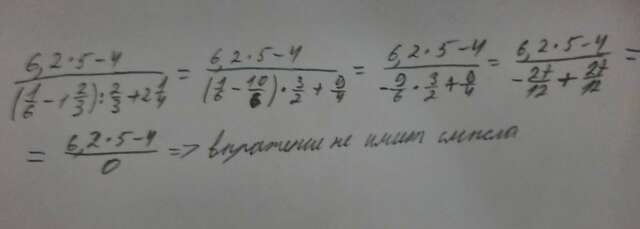 (6,2·5-4)/((1/6 - 1 2/3):2/3+2 1/4) = (6,2·5-4)/((1/6 - 10/6)·3/2+9/4) = (6,2·5-4)/(-9/6·3/2+9/4) = (6,2·5-4)/(-27/12+27/12) =
= (6,2·5-4)/0 => выражение не имеет смысла